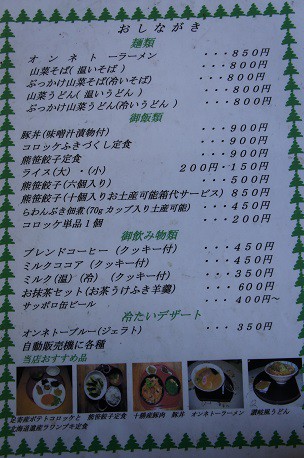 おしながき
麺類
オンネトーラーメン ・・・850円
山菜そば(温いそば) ・・・800円
ぶっかけ山菜そば(冷いそば) ・・・800円
山菜うどん(温いうどん) ・・・800円
ぶっかけ山菜うどん(冷いうどん) ・・・800円
御飯類
豚丼(味噌汁漬物付) ・・・900円
コロッケふきづくし定食 ・・・900円
熊笹餃子定食 ・・・900円
ライス(大)・(小) 200円・150円
熊笹餃子(六個入り) ・・・500円
熊笹餃子(十個入りお土産可能箱代サービス) 850円
らわんぶき佃煮(70gカップ入り土産可能) ・・・450円
コロッケ単品1個 ・・・200円
御飲み物類
ブレンドコーヒー(クッキー付) ・・・450円
ミルクココア(クッキー付) ・・・450円
ミルク(温)(冷)(クッキー付) ・・・350円
お抹茶セット(お茶うけふき羊羹) ・・・600円
サッポロ缶ビール 400円～
冷たいデザート
オンネトーブルー(ジェラト) ・・・350円
自動販売機に各種
当店おすすめ品
足寄産ポテトコロッケと
北海道遺産ラワンブキ定食
熊笹餃子定食
十勝産豚肉 豚丼
オンネトーラーメン
讃岐風うどん